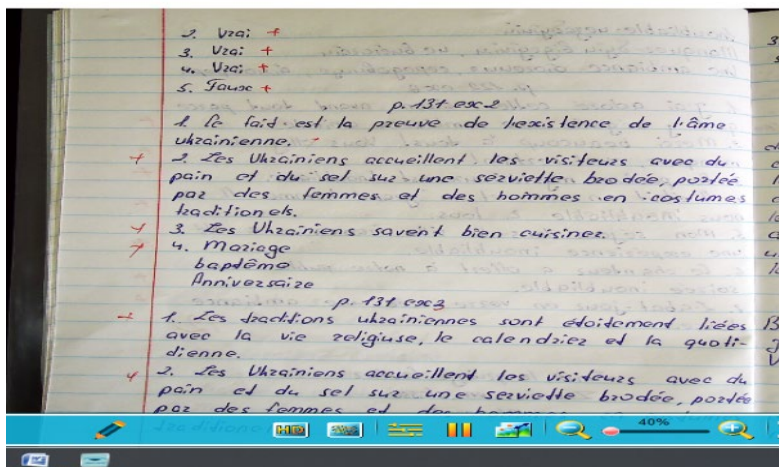 2. Vrai +
3. Vrai +
4. Vrai +
5. Faux +
p. 131 exc 2
1. Ce fait est la preuve de lexistence de l'âme
ukrainienne.
+ 2. Les Ukrainiens accueillent les visiteurs avec du
pain et du sel sur une serviette brodée, portée
par des femmes et des hommes en costumes
traditionels.
+ 3. Les Ukrainiens savent bien cuisiner.
+ 4. Mariage
baptême
Anniversaire
p. 131 exc3
+ 1. Les traditions ukrainiennes sont étoitement liées
avec la vie religiuse, le calendrier et la quoti-
dienne.
+ 2. Les Ukrainiens accueillent les visiteurs avec du
pain et du sel sur une serviette brodée, portée
par des femmes et des
40%